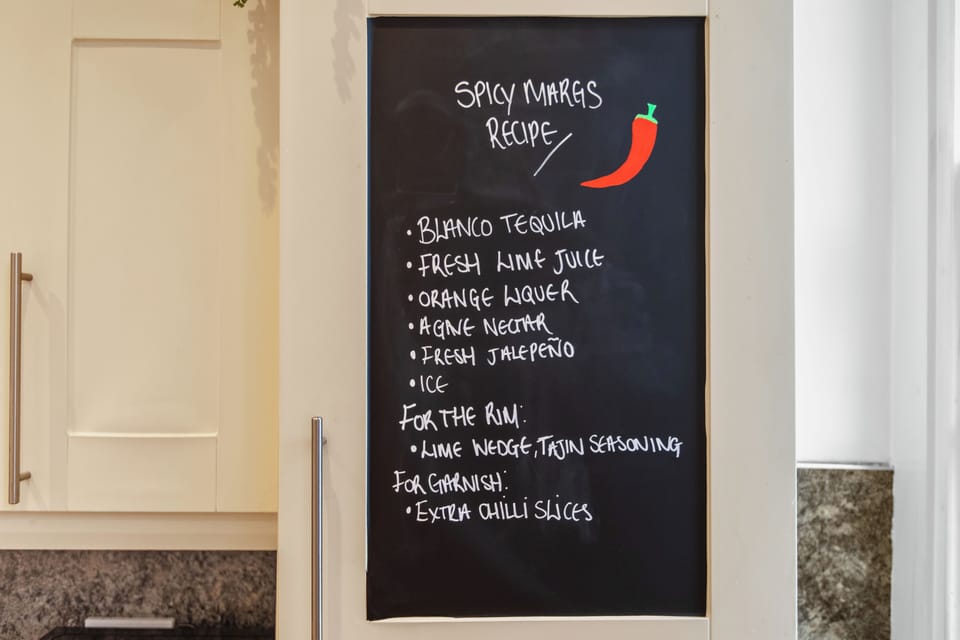 SPICY MARGS
RECIPE
• BLANCO TEQUILA
• FRESH LIME JUICE
• ORANGE LIQUER
• AGAVE NECTAR
• FRESH JALEPEÑO
• ICE
FOR THE RIM:
• LIME WEDGE, TAJIN SEASONING
FOR GARNISH:
• EXTRA CHILLI SLICES